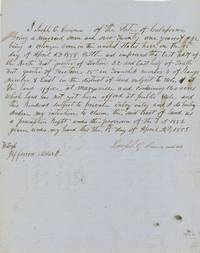 I Joseph C. Cummins of the State of California
being a married man and over Twenty one years of age
being a citizen born in the united States have on the 1
day of April AD 1855 Settle and improved the East half of
the North East quarter of Section 22 and East half of South
East quarter of Section 15 in township number 6 of Range
number 6 East in the district of land subject to sale at
the land office at marysville and containing 160 acres
which land has not yet been offered at public Sale and
thus rendered subject to private entry and I do hereby
declare my intention to claim the said tract of land as
a preemption Right under the provision of the
given under my hand this the day of April AD 1855
Joseph C. Cummins
Witness
Jefferson